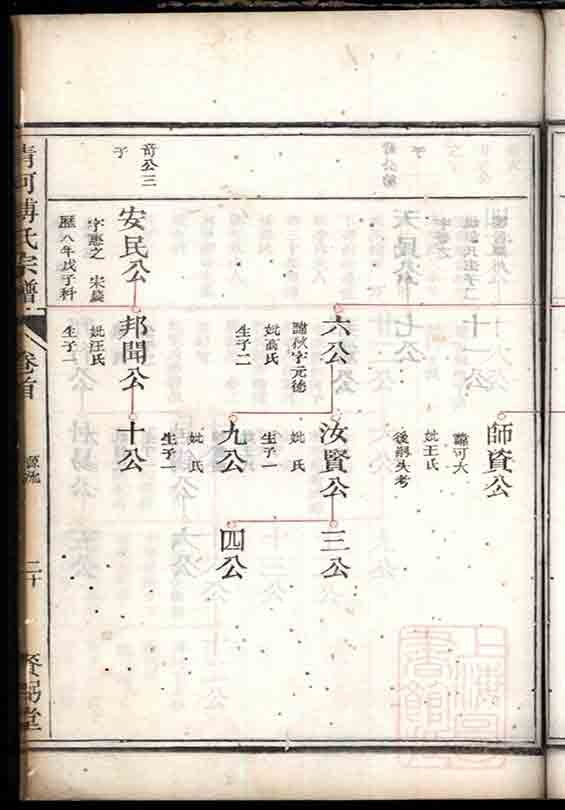 師資公
諱可大
妣王氏
後嗣失考
六公
諱秋字元德
妣高氏
生子二
汝賢公
妣 氏
生子一
三公
九公
妣 氏
生子一
四公
奇公三
子
安民公
字惠之 宋慶
歷八年戊子科
邦聞公
妣汪氏
生子一
十公
清河傅氏宗譜
卷首
二十
賚弼堂
上海圖書館藏